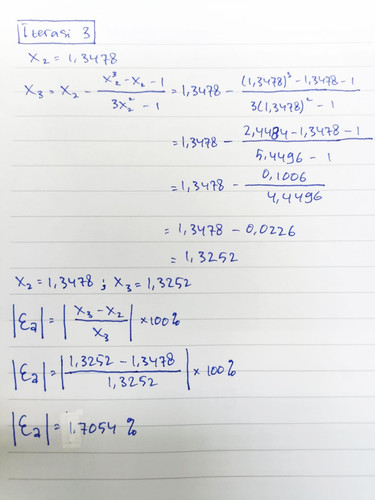 Iterasi 3
X₂ = 1,3478
X₃ = X₂ - (X₂³ - X₂ - 1)/(3X₂² - 1) = 1,3478 - ((1,3478)³ - 1,3478 - 1)/(3(1,3478)² - 1)
= 1,3478 - (2,4484 - 1,3478 - 1)/(5,4496 - 1)
= 1,3478 - 0,1006/4,4496
= 1,3478 - 0,0226
= 1,3252
X₂ = 1,3478 ; X₃ = 1,3252
|Ea| = |(X₃ - X₂)/X₃| × 100%
|Ea| = |(1,3252 - 1,3478)/1,3252| × 100%
|Ea| = 1,7054 %